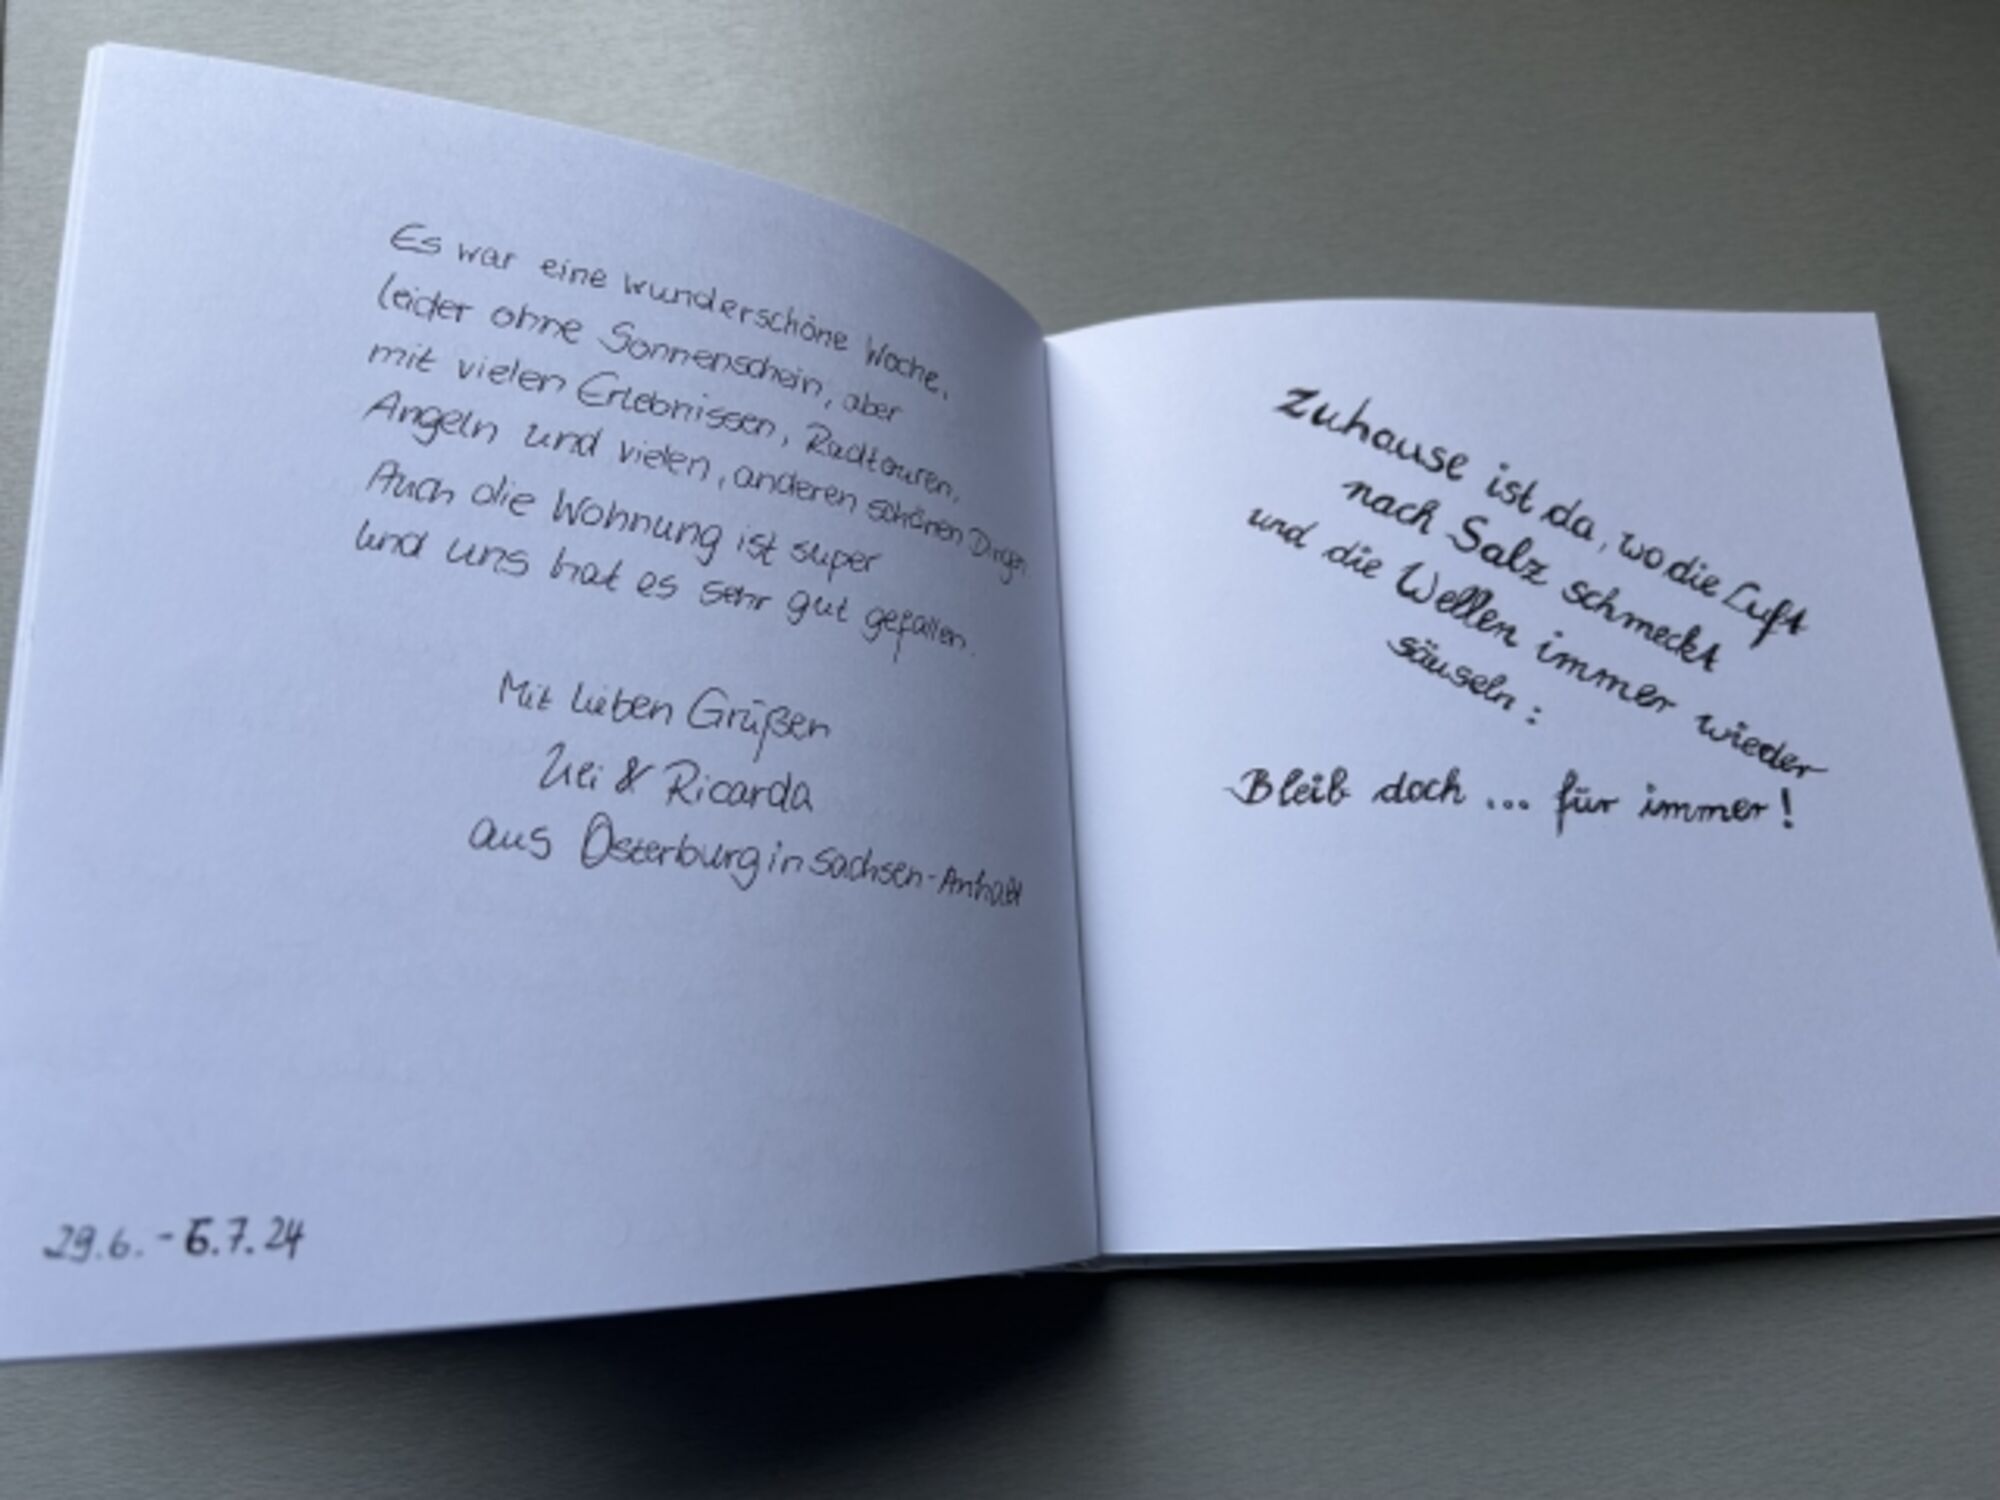 Es war eine wunderschöne Woche,
leider ohne Sonnenschein, aber
mit vielen Erlebnissen, Radtouren,
Angeln und vielen, anderen schönen Dingen.
Auch die Wohnung ist super
und uns hat es sehr gut gefallen.
Mit lieben Grüßen
& Ricarda
aus Osterburg in Sachsen-Anhalt
29.6. - 6.7.24
Zuhause ist da, wo die Luft
nach Salz schmeckt
und die Wellen immer wieder
säuseln:
Bleib doch ... für immer!